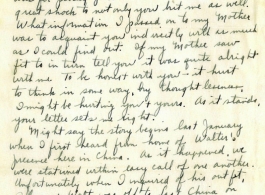 great shock to not only you but me as well.
What information I passed on to my Mother
was to acquaint you indirectly with as much
as I could find out. If my Mother saw
fit to in turn tell you it was quite alright
with me. To be honest with you - it hurt
to think in some way, by thoughtlessness,
I might be hurting you & yours. As it stands,
your letter sets me right.
Might say the story begins last January
when I first heard from home of Walter's
presence here in China. As it happened, we
were stationed within easy call of one another.
Unfortunately, when I inquired of his outfit,
China on